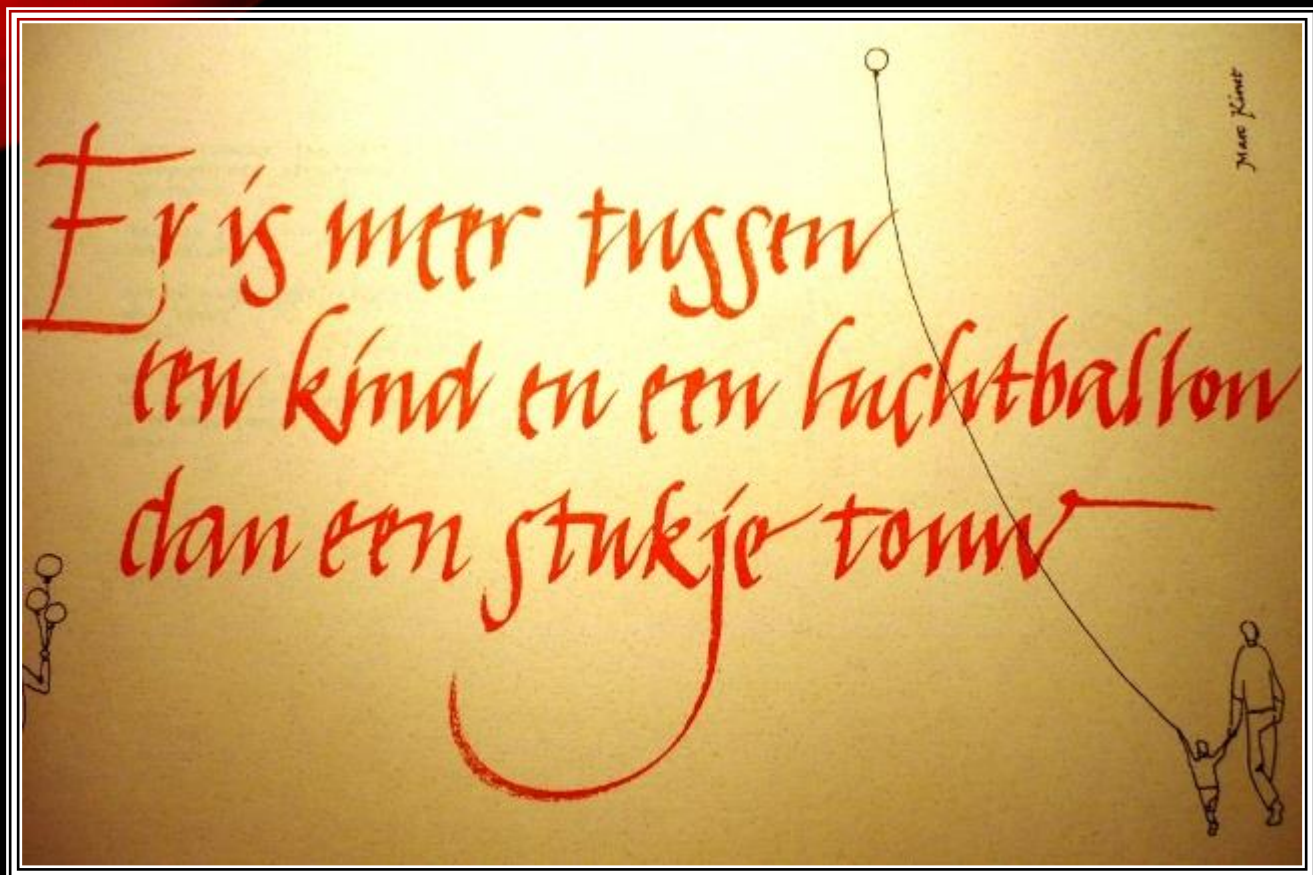 Er is meer tussen
een kind en een luchtballon
dan een stukje touw
Marc Kinet